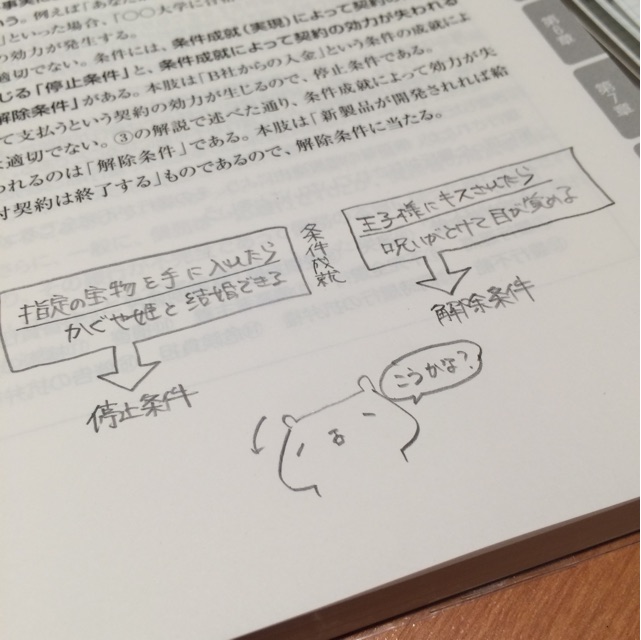 った場合、
の効力が発生する。
適切でない。条件には、条件成就(実現)によって契約
じる「停止条件」と、条件成就によって契約の効力が失われる
解除条件」がある。本肢は「B社からの入金」という条件の成就によ
て支払うという契約の効力が生じるので、停止条件である。
適切でない。③の解説で述べた通り、条件成就によって効力が失
われるのは「解除条件」である。本肢は「新製品が開発されれば給
付契約は終了する」ものであるので、解除条件に当たる。
指定の宝物を手に入れたら
かぐや姫と結婚できる
停止条件
条件成就
王子様にキスされたら
呪いがとけて目が覚める
解除条件
こうかな?